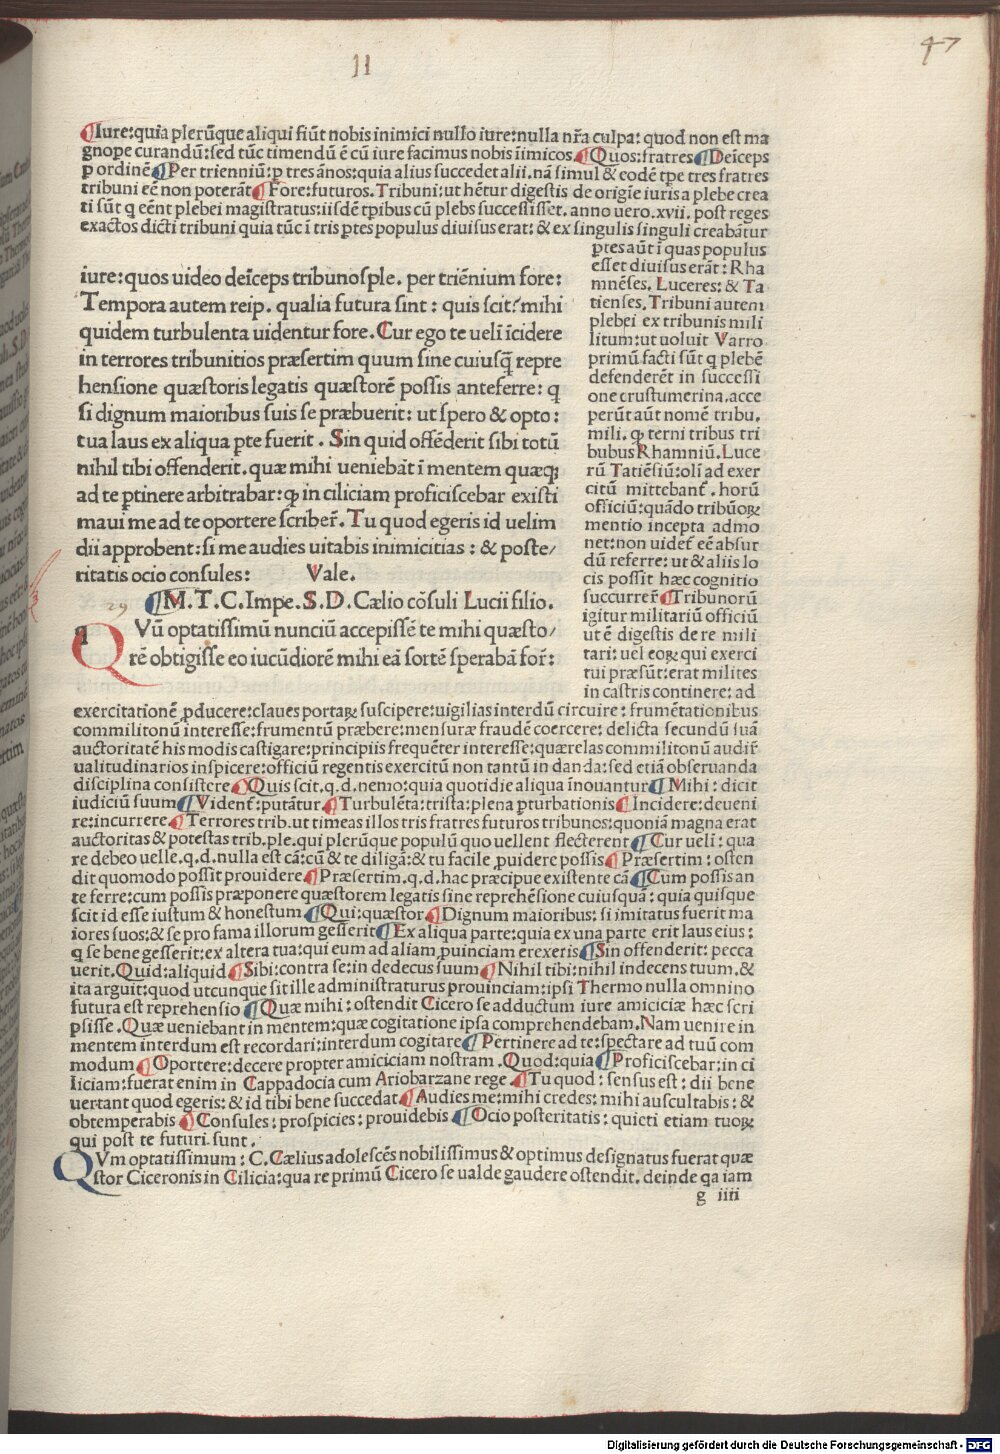 II
47
¶Iure:quia plerũque aliqui fiũt nobis inimici nullo iure:nulla nr̃a culpa: quod non est ma
gnope curandũ:sed tũc timendũ ẽ cũ iure facimus nobis ĩimicos.¶Quos:fratres¶Deĩceps
ꝑ ordinẽ¶Per trienniũ:ꝑ tres ãnos:quia alius succedet alii.nã simul & eodẽ tpe tres fratres
tribuni eẽ non poterãt¶Fore:futuros.Tribuni:ut hẽtur digestis de origĩe iuris a plebe crea
ti sũt q eẽnt plebei magistratus:iisdẽ tpibus cũ plebs successisset.anno uero.xvii.post reges
exactos dicti tribuni quia tũc ĩ tris ꝑtes populus diuisus erat:& ex singulis singuli creabãtur
ꝑtes aũt ĩ quas populus
esset diuisus erãt:Rha
mnẽses.Luceres:& Ta
tienses.Tribuni autem
plebei ex tribunis mili
litum:ut uoluit Varro
primũ facti sũt q plebẽ
defenderẽt in successi
one crustumerina.acce
perũt aũt nomẽ tribu.
mili.ꝙ terni tribus tri
bubus Rhamniũ.Luce
rũ Tatiẽsiũ:olĩ ad exer
citũ mittebant̃.horũ
officiũ:quãdo tribũoꝝ
mentio incepta admo
net:non uidet̃ eẽ absur
dũ referre:ut & aliis lo
cis possit hæc cognitio
succurrer̃¶Tribunorũ
igitur militariũ officiũ
ut ẽ digestis de re mili
tari:uel eoꝝ qui exerci
tui præsũt:erat milites
in castris continere:ad
iure:quos uideo deĩceps tribunos ple. per triẽnium fore:
Tempora autem reip. qualia futura sint: quis scit? mihi
quidem turbulenta uidentur fore.Cur ego te uelĩ ĩcidere
in terrores tribunitios præsertim quum sine cuiusq̃ repre
hensione quæstoris legatis quæstorẽ possis anteferre: q
si dignum maioribus suis se præbuerit: ut spero & opto:
tua laus ex aliqua ꝑte fuerit. Sin quid offẽderit sibi totũ
nihil tibi offenderit.quæ mihi ueniebãt ĩ mentem quæqꝫ
ad te ꝑtinere arbitrabar:ꝙ in ciliciam proficiscebar existi
maui me ad te oportere scriber̃.Tu quod egeris id uelim
dii approbent:si me audies uitabis inimicitias: & poste/
ritatis ocio consules: Vale.
29 ¶M.T.C.Impe.S.D.Cælio cõsuli Lucii filio.
QVũ optatissimũ nunciũ accepissẽ te mihi quæsto/
rẽ obtigisse eo iucũdiorẽ mihi eã sortẽ sperabã for̃:
exercitationẽ ꝓducere:claues portaꝝ suscipere:uigilias interdũ circuire: frumẽtationibus
commilitonũ interesse:frumentũ præbere:mensuræ fraudẽ coercere: delicta secundũ suã
auctoritatẽ his modis castigare:principiis frequẽter interesse:quærelas commilitonũ audir̃
ualitudinarios inspicere:officiũ regentis exercitũ non tantũ in danda:sed etiã obseruanda
disciplina consistere¶Quis scit.q.d.nemo:quia quotidie aliqua ĩnouantur¶Mihi: dicit
iudiciũ suum¶Vident̃:putãtur¶Turbulẽta:trista:plena ꝑturbationis¶Incidere:deueni
re:incurrere¶Terrores trib.ut timeas illos tris fratres futuros tribunos:quoniã magna erat
auctoritas & potestas trib.ple.qui plerũque populũ quo uellent flecterent¶Cur ueli: qua
re debeo uelle.q.d.nulla est cã:cũ & te diligã:& tu facile ꝓuidere possis¶Præsertim: osten
dit quomodo possit prouidere¶Præsertim.q.d.hac præcipue existente cã¶Cum possis an
te ferre:cum possis præponere quæstorem legatis sine reprehẽsione cuiusquã: quia quisque
scit id esse iustum & honestum¶Qui:quæstor¶Dignum maioribus: si imitatus fuerit ma
iores suos:& se pro fama illorum gesserit¶Ex aliqua parte:quia ex una parte erit laus eius:
q se bene gesserit:ex altera tua:qui eum ad aliam ꝓuinciam erexeris¶Sin offenderit: pecca
uerit.Quid:aliquid¶Sibi:contra se:in dedecus suum¶Nihil tibi:nihil indecens tuum.&
ita arguit:quod utcunque sit ille administraturus prouinciam:ipsi Thermo nulla omnino
futura est reprehensio¶Quæ mihi: ostendit Cicero se adductum iure amiciciæ hæc scri
psisse.Quæ ueniebant in mentem:quæ cogitatione ipsa comprehendebam.Nam uenire in
mentem interdum est recordari:interdum cogitare¶Pertinere ad te:spectare ad tuũ com
modum¶Oportere:decere propter amiciciam nostram.Quod:quia¶Proficiscebar:in ci
liciam:fuerat enim in Cappadocia cum Ariobarzane rege¶Tu quod: sensus est: dii bene
uertant quod egeris:& id tibi bene succedat¶Audies me:mihi credes: mihi auscultabis: &
obtemperabis¶Consules:prospicies:prouidebis¶Ocio posteritatis: quieti etiam tuoꝝ
qui post te futuri sunt.
QVm optatissimum: C.Cælius adolescẽs nobilissimus & optimus designatus fuerat quæ
stor Ciceronis in Cilicia:qua re primũ Cicero se ualde gaudere ostendit.deinde qa iam
g iiii
Digitalisierung gefördert durch die Deutsche Forschungsgemeinschaft - DFG